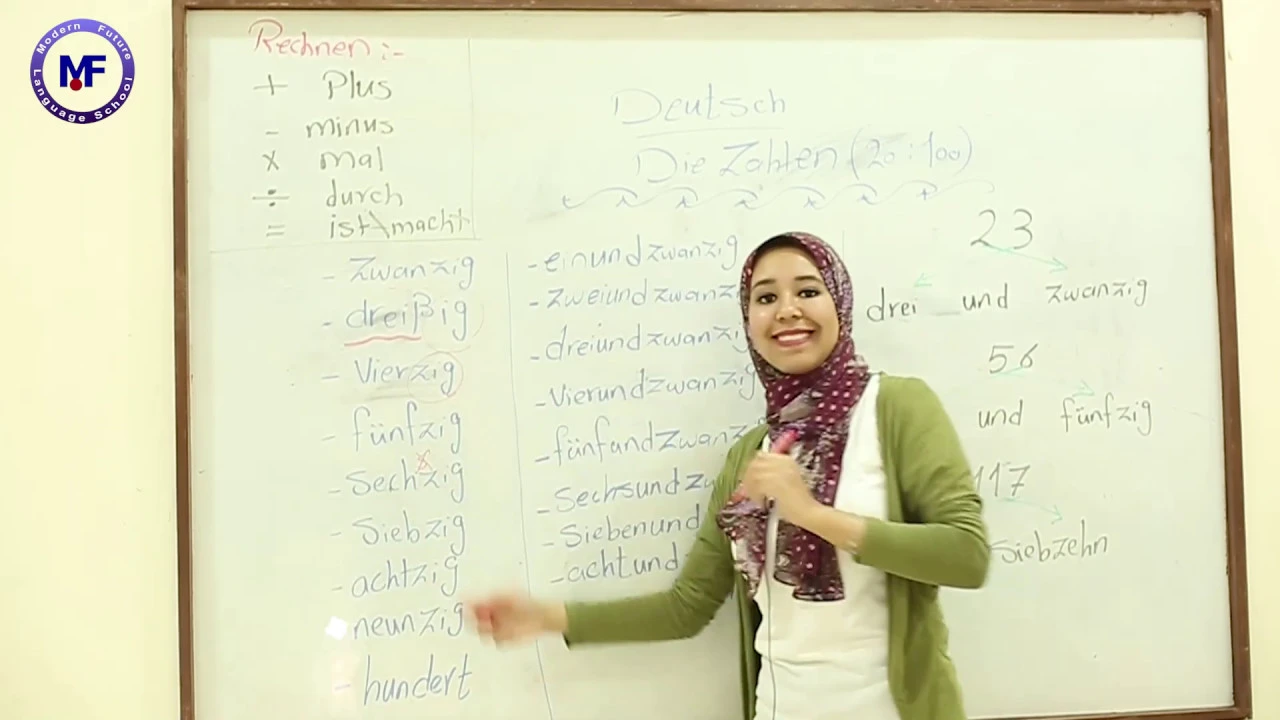 Modern Future
MF
Language School
Rechnen :-
+ Plus
- minus
x mal
÷ durch
= ist\macht
Deutsch
Die Zahlen (20 : 100)
- Zwanzig
- dreißig
- Vierzig
- fünfzig
- Sechzig
- Siebzig
- achtzig
neunzig
- hundert
- einundzwanzig
- Zweiundzwanz
- dreiundzwanzig
- Vierundzwanzig
- fünfundzwanz
- Sechsundzw
- Siebenund
- achtund
23
drei und zwanzig
56
und fünfzig
117
Siebzehn